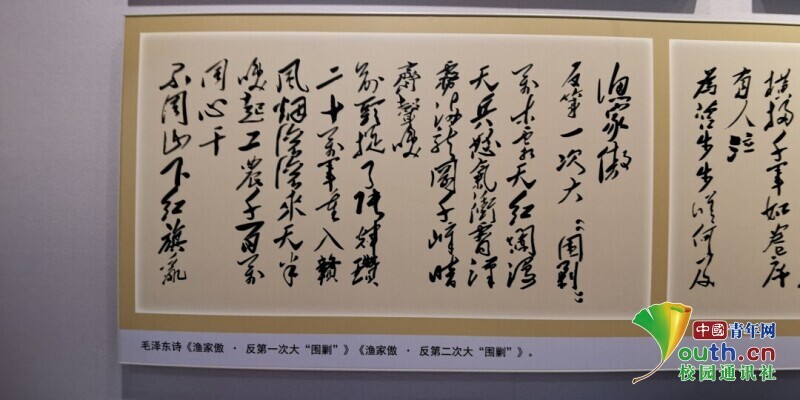 渔家傲
反第一次大“围剿”
万木霜天红烂漫
天兵怒气冲霄汉
雾满龙冈千嶂暗
齐声唤
前头捉了张辉瓒
二十万军重入赣
风烟滚滚来天半
唤起工农千百万
同心干
不周山下红旗乱
横扫千军如卷席
有人泣
为营步步嗟何及
毛泽东诗《渔家傲 · 反第一次大“围剿”》《渔家傲 · 反第二次大“围剿”》。
中国青年网
youth.cn
校园通讯社